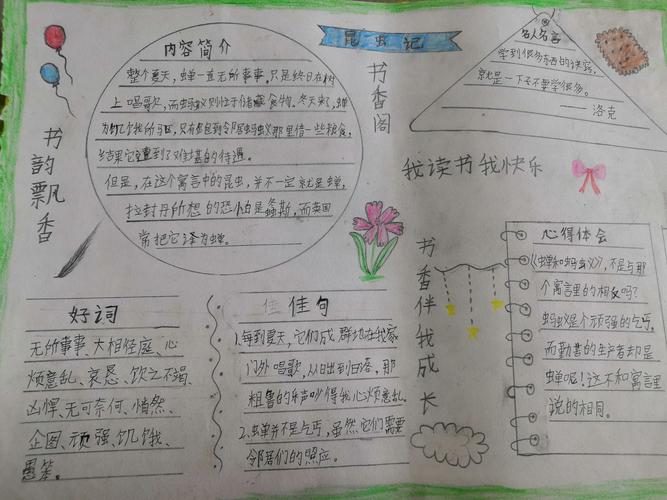 昆虫记
内容简介
整个夏天，蝉一直无所事事，只是终日在树
上唱歌，而蚂蚁则忙于储藏食物。冬天来了，蝉
为饥饿所
只有跑到令居蚂蚁那里借一些粮食，
结果它遭到了难堪的待遇。
但是，在这个寓言中的昆虫，并不一定就是蝉，
拉封丹所想的恐怕是螽斯，而英国
常把它译为蝉。
书韵飘香
书香阁
名人名言
学到很多东西的诀窍，
就是一下子不要学很多。
洛克
我读书我快乐
书香伴我成长
心得体会
《蝉和蚂蚁》，不是与那
个寓言里的相反吗？
蚂蚁是个顽强的乞丐，
而勤甚的生产者却是
蝉呢！这不和寓言里
说的相同。
好词
无所事事、大相径庭、心
烦意乱、哀恳、饮之不竭、
凶悍、无可奈何、悄然、
企图、顽强、饥饿、
愚笨。
佳佳句
1.每到夏天，它们成群地在我家
门外唱歌，从日出到日落，那
粗鲁的乐声吵得我心烦意乱。
2.蝉并不是乞丐，虽然它们需要
邻居们的照应。